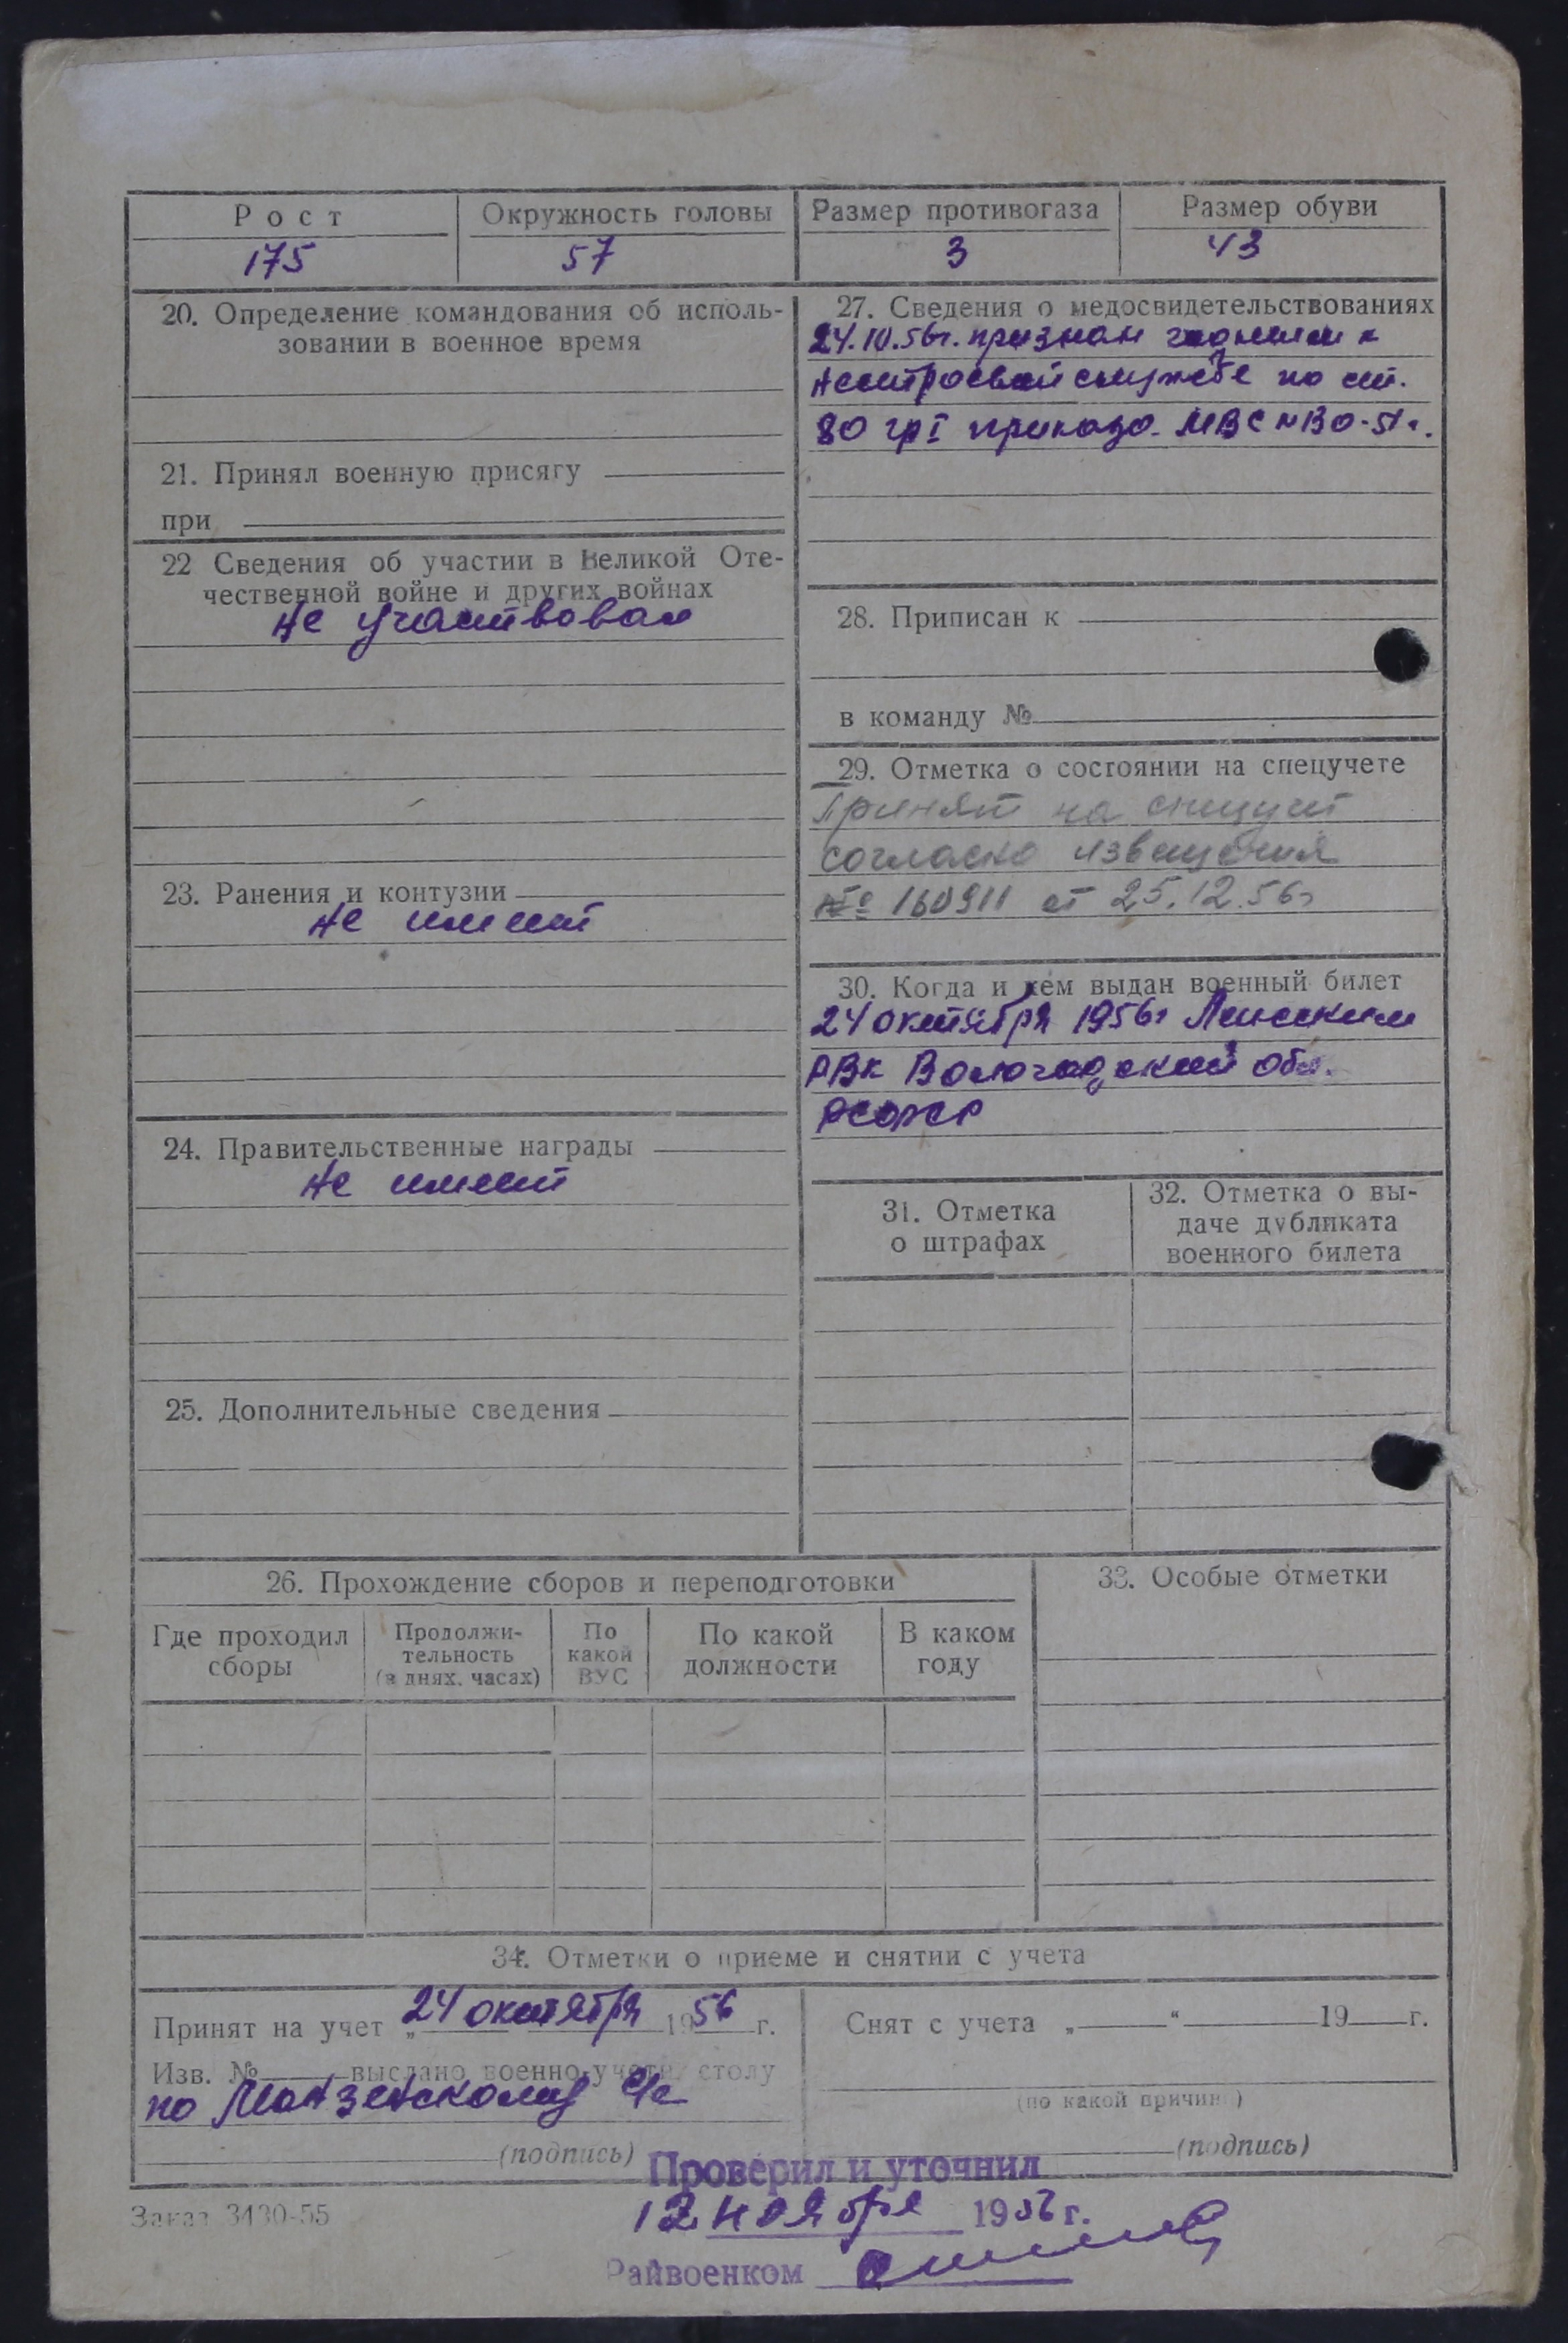 Рост Окружность головы Размер противогаза Размер обуви
175 57 3 43
20. Определение командования об исполь-
зовании в военное время
21. Принял военную присягу
при
22 Сведения об участии в Великой Оте-
чественной войне и других войнах
не участвовал
23. Ранения и контузии
не имеет
24. Правительственные награды
не имеет
25. Дополнительные сведения
27. Сведения о медосвидетельствованиях
24.10.56г. признан годным к
нестроевой службе по ст.
80 гр I приказа МВС №130-51г.
28. Приписан к
в команду №
29. Отметка о состоянии на спецучете
Принят на спецучет
согласно извещения
№ 160911 от 25.12.56г
30. Когда и кем выдан военный билет
24 октября 1956г
РВК Вологодской обл.
РСФСР
31. Отметка
о штрафах
32. Отметка о вы-
даче дубликата
военного билета
26. Прохождение сборов и переподготовки
Где проходил
сборы
Продолжи-
тельность
(в днях, часах)
По
какой
ВУС
По какой
должности
В каком
году
33. Особые отметки
34. Отметки о приеме и снятии с учета
Принят на учет „ 24 октября 1956 г.
Изв. № выслано военно-учетн. столу
по Монзенскому с/с
(подпись)
Снят с учета „ “ 19 г.
(по какой причине)
(подпись)
Проверил и уточнил
12 ноября 1956 г.
Райвоенком
Заказ 3430-55